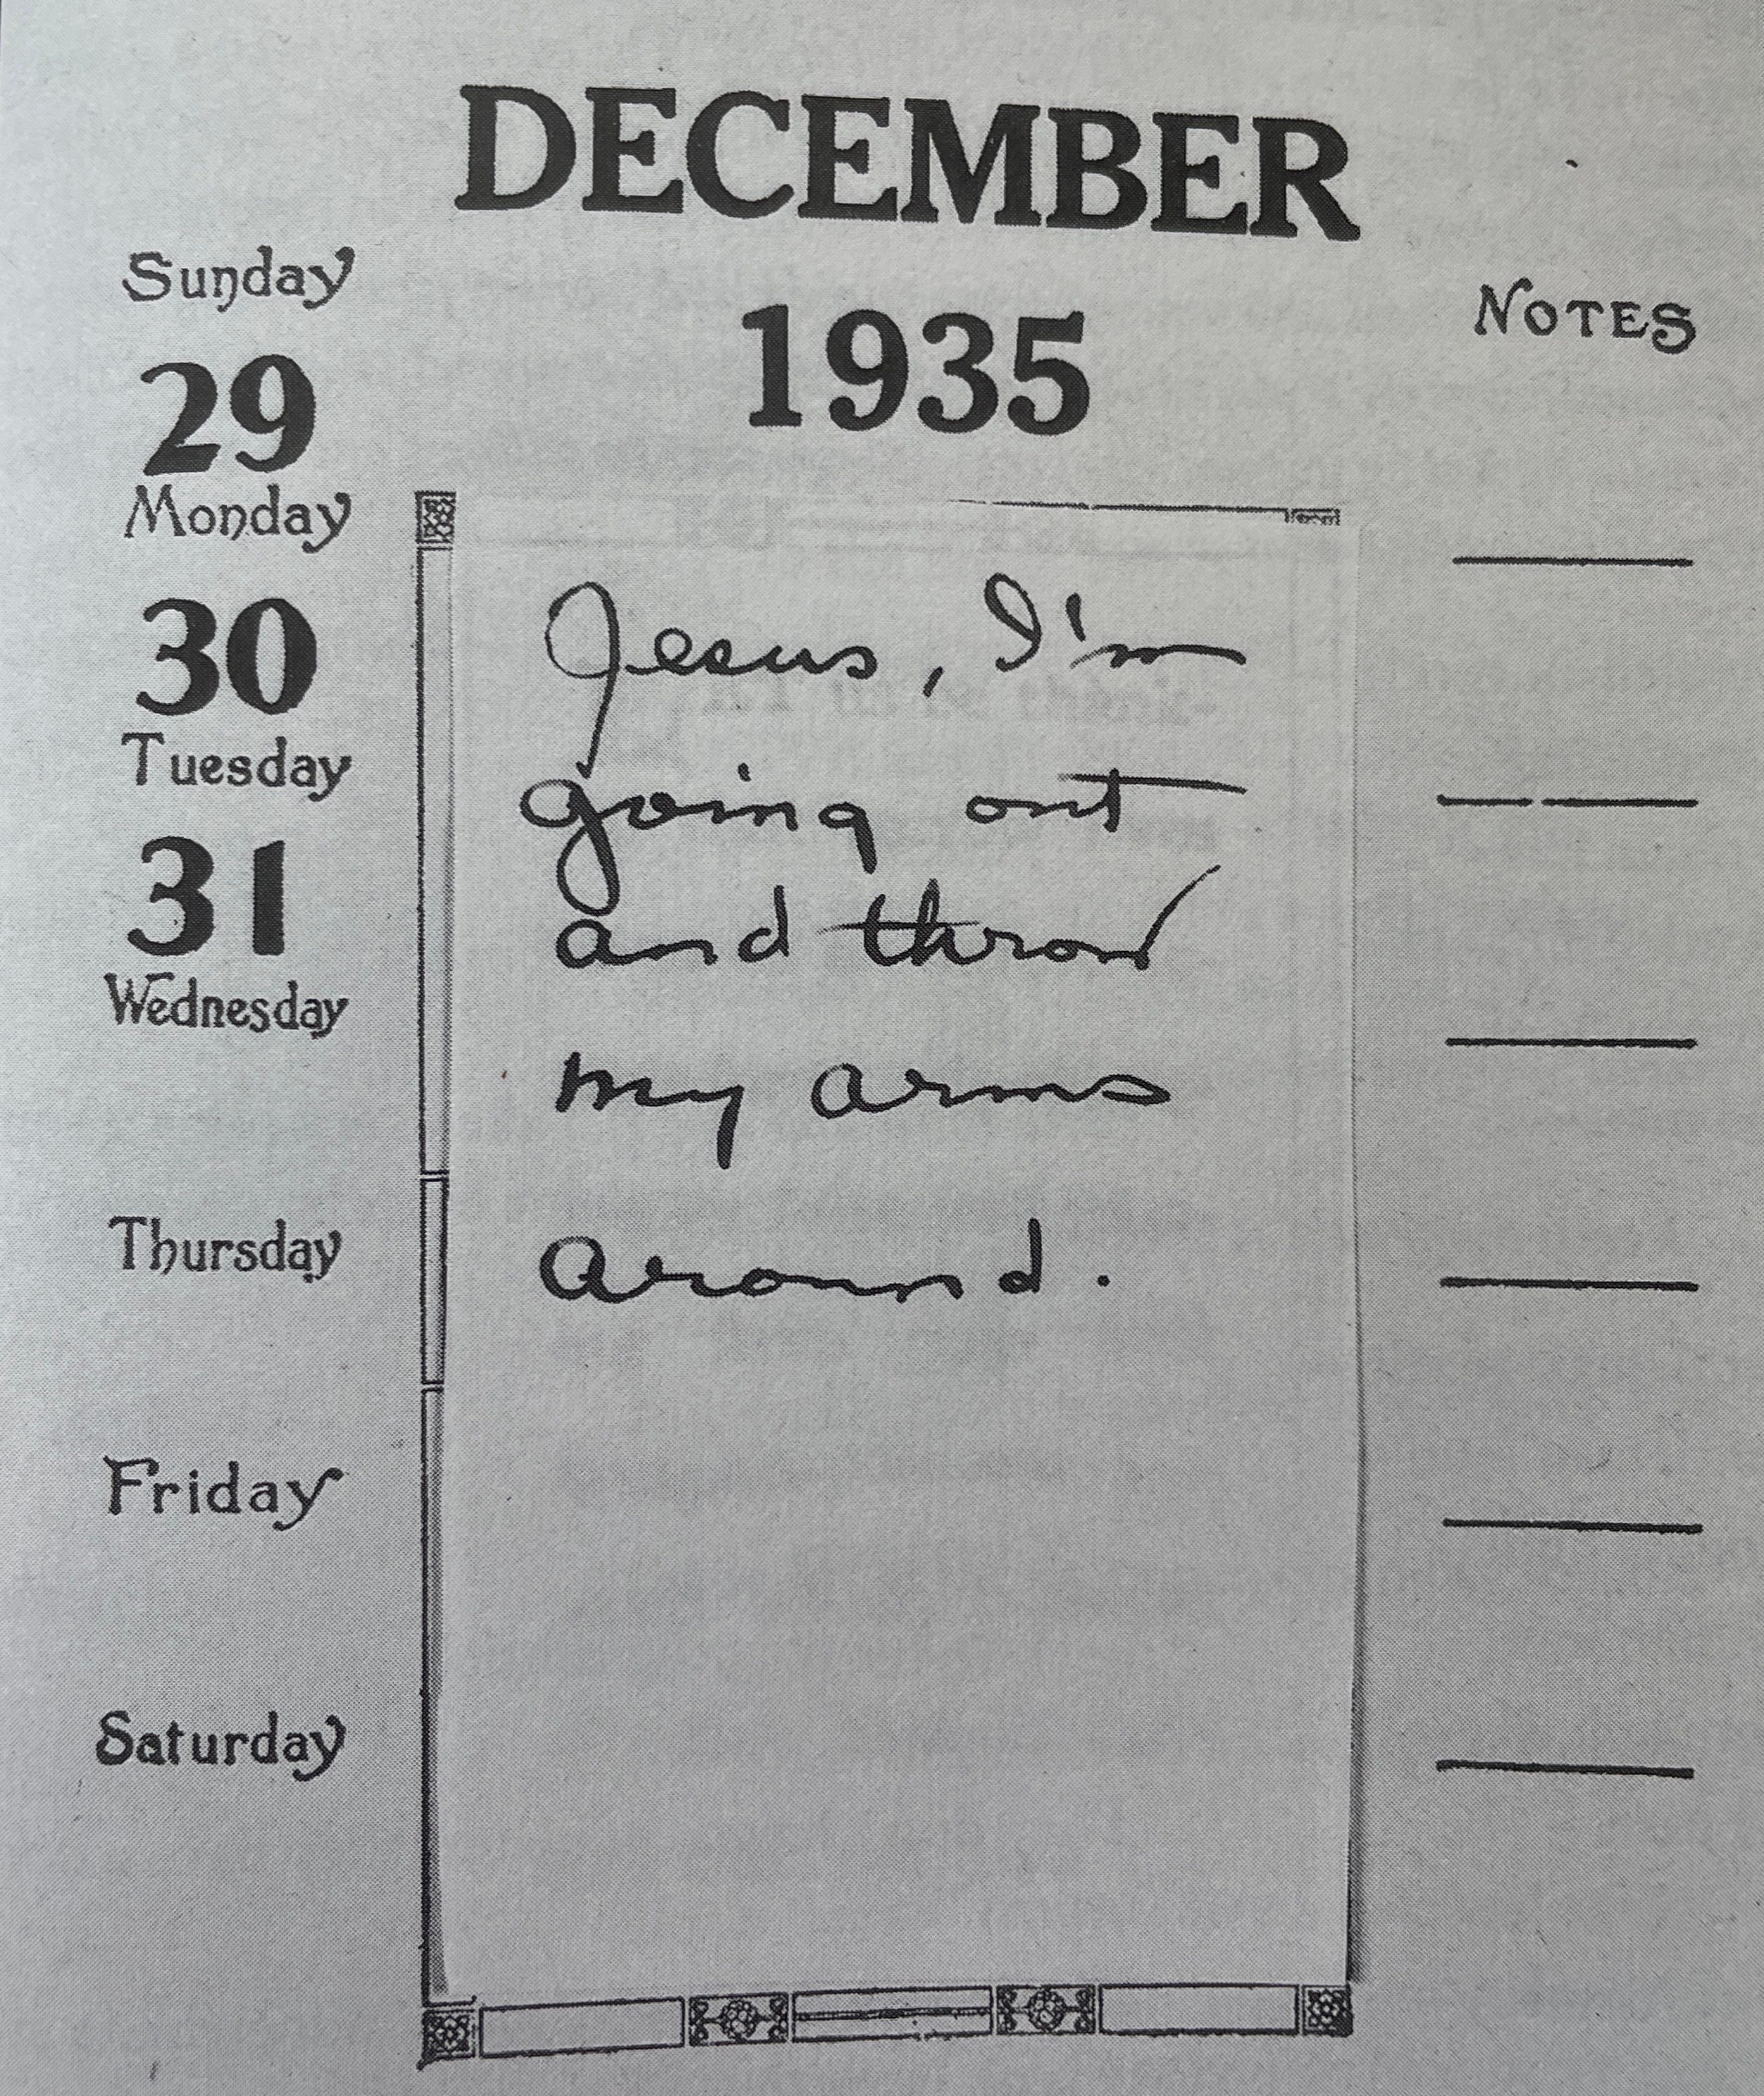 DECEMBER
1935
NOTES
Sunday
29
Monday
30
Tuesday
31
Wednesday
Thursday
Friday
Saturday
Jesus, I'm
going out
and throw
my arms
around.